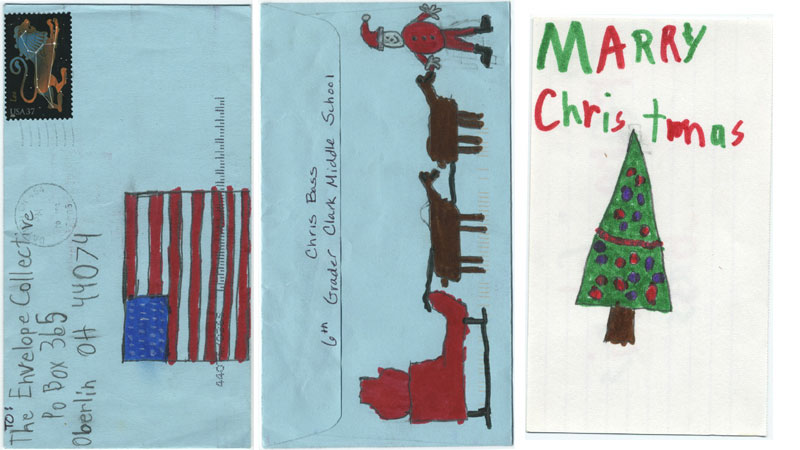 USA37
TO:
The Envelope Collective
Po Box 365
Oberlin OH 44074
Chris Bass
6th Grader Clark Middle School
MARRY
Christmas